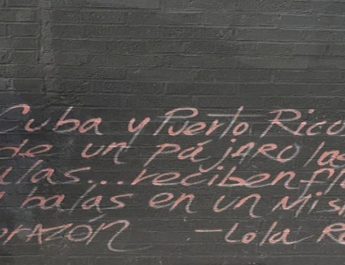 Cuba y Puerto Rico
de un pájaro las
alas... reciben
balas en un mis
corazón — Lola